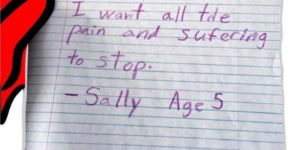 I want all the
pain and sufering
to stop.
-Sally Age 5